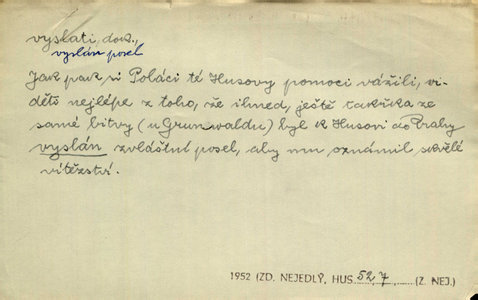 vyslati, dok.,
vyslán posel
Jak pak si Poláci té Husovy pomoci vážili, vi-
děti nejlépe z toho, že ihned, ještě takřka ze
samé bitvy (u Grunwaldu) byl k Husovi do Prahy
vyslán zvláštní posel, aby mu oznámil skvělé
vítězství.
1952 (ZD. NEJEDLÝ, HUS 52,7 (Z. NEJ.)